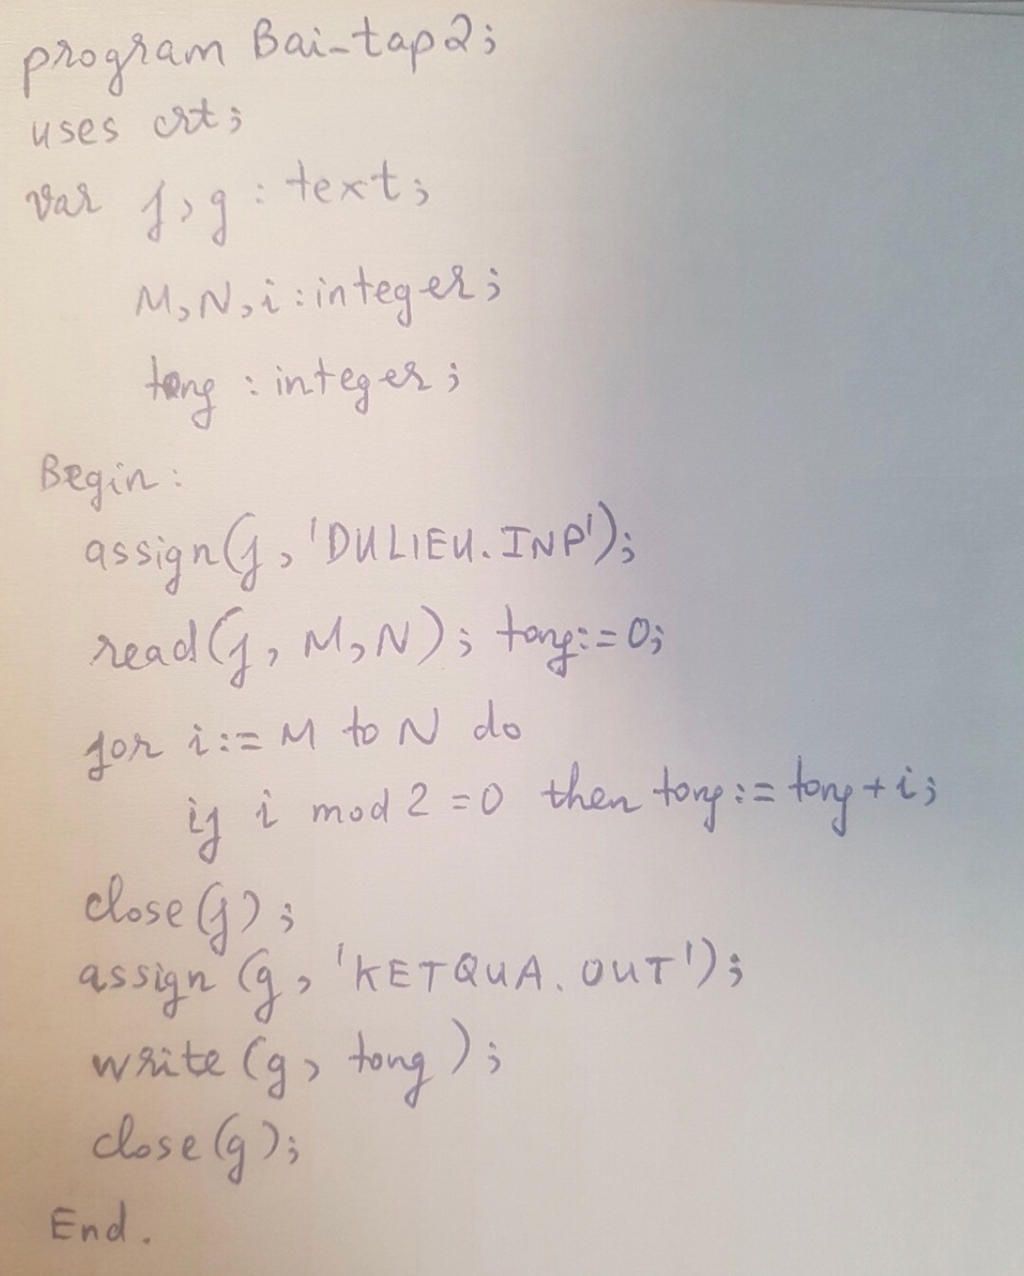 program Bai_tap2;
uses crt;
var f,g : text;
M,N,i : integer;
tong : integer;
Begin:
assign(f, 'DULIEU.INP');
read(f, M,N); tong:=0;
for i:= M to N do
if i mod 2 =0 then tong:= tong + i;
close(f);
assign (g, 'KETQUA.OUT');
write (g, tong );
close(g);
End.